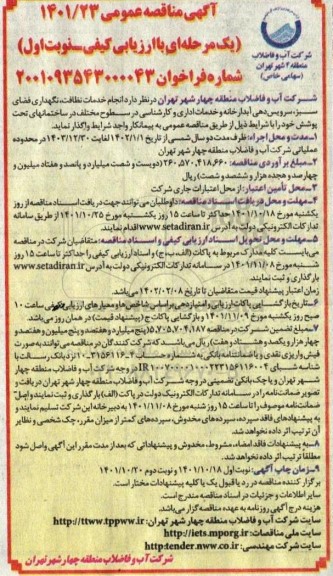 آگهی مناقصه عمومی ۱۴۰۱/۲۳
(یک مرحله‌ای با ارزیابی کیفی_نوبت اول)
شماره فراخوان ۲۰۰۱۰۹۳۵۴۳۰۰۰۰۴۳
شرکت آب و فاضلاب
منطقه ۴ شهر تهران
(سهامی خاص)
شرکت آب و فاضلاب منطقه چهار شهر تهران در نظر دارد انجام خدمات نظافت، نگهداری فضای
سبز، سرویس‌دهی آبدارخانه و خدمات اداری و کارشناسی در سطوح مختلف در ساختمانهای تحت
پوشش خود را با شرایط ذیل از طریق مناقصه عمومی به پیمانکار واجد شرایط واگذار نماید.
۱-مدت و محل اجرا: ظرف مدت دو سال شمسی از تاریخ ۱۴۰۲/۱/۱ لغایت ۱۴۰۳/۱۲/۳۰ در محدوده
عملیاتی شرکت آب و فاضلاب منطقه چهار شهر تهران.
۲-مبلغ برآوردی مناقصه: ۲۶۰،۵۷۰،۴۱۸،۶۶۰ (دویست و شصت میلیارد و پانصد و هفتاد میلیون و
چهارصد و هجده هزار و ششصد و شصت) ریال
۳-محل تأمین اعتبار: از محل اعتبارات جاری شرکت
۴-مهلت و محل دریافت اسناد مناقصه: داوطلبان می‌توانند جهت دریافت اسناد مناقصه از روز
یکشنبه مورخ ۱۴۰۱/۱۰/۱۸ حداکثر تا ساعت ۱۵ روز یکشنبه مورخ ۱۴۰۱/۱۰/۲۵ از طریق سامانه
تدارکات الکترونیکی دولت به آدرس www.setadiran.ir اقدام نمایند.
۵-مهلت و محل تحویل اسناد ارزیابی کیفی و اسناد مناقصه: متقاضیان شرکت در مناقصه
می‌بایست کلیه مدارک مربوط به پاکات (الف، ب، ج) و اسناد ارزیابی کیفی را حداکثر تا ساعت ۱۵ روز
شنبه مورخ ۱۴۰۱/۱۱/۰۸ در سامانه تدارکات الکترونیکی دولت به آدرس www.setadiran.ir
بارگذاری و ثبت نمایند.
زمان اعتبار پیشنهاد قیمت متقاضیان تا تاریخ ۱۴۰۲/۰۲/۰۸ می‌باشد.
۶-تاریخ بازگشایی پاکات ارزیابی و امتیازدهی براساس شاخص‌ها و معیارهای ارزیابی کیفی ساعت ۱۰
صبح روز یکشنبه مورخ ۱۴۰۱/۱۱/۰۹ و بازگشایی پاکات ج (پیشنهاد قیمت) در همان روز می‌باشد.
۷-مبلغ تضمین شرکت در مناقصه ۵،۷۰۵،۷۰۴،۱۸۷ (پنج میلیارد و هفتصد و پنج میلیون و هفتصد و
چهار هزار و یکصد و هشتاد و هفت) ریال می‌باشد که شرکت کنندگان در مناقصه می‌توانند به صورت
فیش واریز نقدی و یا ضمانتنامه بانکی به شماره حساب
شهر تهران و یا چک بانکی تضمینی در وجه شرکت آب و فاضلاب منطقه چهار شهر تهران دریافت و
تصویر ضمانت‌نامه را در سامانه تدارکات الکترونیک دولت در پاکت (الف) بارگذاری و ثبت نمایند و اصل
ضمانت‌نامه موصوف را تا ساعت ۱۵ روز شنبه مورخ ۱۴۰۱/۱۱/۰۸ به دبیرخانه این شرکت تسلیم نمایند و
به پیشنهادهای فاقد سپرده، سپرده‌های مخدوش، سپرده‌های کمتر از میزان مقرر، چک شخصی و نظایر
آن ترتیب اثر داده نخواهد شد.
۸-به پیشنهادات فاقد امضاء، مشروط، مخدوش و پیشنهاداتی که بعد از مدت مقرر این آگهی واصل شود
مطلقا ترتیب اثر داده نخواهد شد.
۹-زمان چاپ آگهی: نوبت اول ۱۴۰۱/۱۰/۱۸ و نوبت دوم ۱۴۰۱/۱۰/۲۰
برگزار کننده مناقصه در رد یا قبول یک یا کلیه پیشنهادات مختار است.
سایر اطلاعات و جزئیات در اسناد مناقصه مندرج است.
هزینه درج آگهی روزنامه به عهده مناقصه گزار می‌باشد.
سایت شرکت آب و فاضلاب منطقه چهار شهر تهران: http://ttww.tppww.ir
سایت ملی مناقصات: http://iets.mporg.ir
سایت شرکت مهندسی: http:tender.nww.co.ir
شرکت آب و فاضلاب منطقه چهار شهر تهران